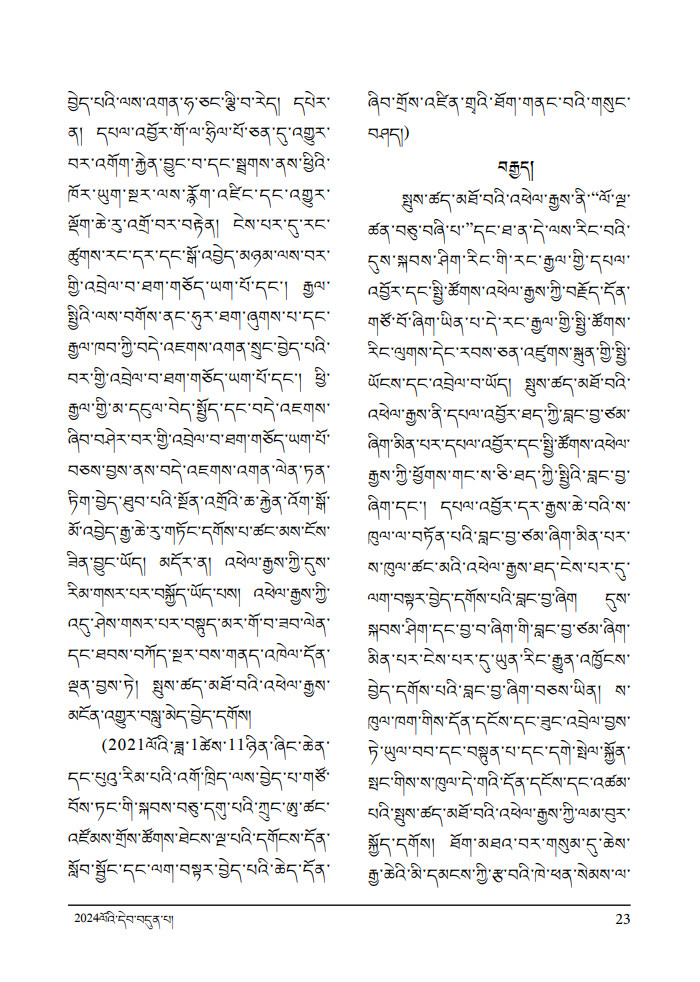 བྱེད་པའི་ལས་འགན་ཧ་ཅང་ལྕི་བ་རེད། དཔེར་
ན། དཔལ་འབྱོར་གོ་ལ་ཧྲིལ་པོ་ཅན་དུ་འགྱུར་
བར་འགོག་རྐྱེན་བྱུང་བ་དང་སྦྲགས་ནས་ཕྱིའི་
ཁོར་ཡུག་སྔར་ལས་རྙོག་འཛིང་དང་འགྱུར་
ལྡོག་ཆེ་རུ་འགྲོ་བར་བརྟེན། ངེས་པར་དུ་རང་
ཚུགས་རང་དར་དང་སྒོ་འབྱེད་མཉམ་ལས་བར་
གྱི་འབྲེལ་བ་ཐག་གཅོད་ཡག་པོ་དང་། རྒྱལ་
སྤྱིའི་ལས་བགོས་ནང་ཧུར་ཐག་ཞུགས་པ་དང་
རྒྱལ་ཁབ་ཀྱི་བདེ་འཇགས་འགན་སྲུང་བྱེད་པའི་
བར་གྱི་འབྲེལ་བ་ཐག་གཅོད་ཡག་པོ་དང་། ཕྱི་
རྒྱལ་གྱི་མ་དངུལ་བེད་སྤྱོད་དང་བདེ་འཇགས་
ཞིབ་བཤེར་བར་གྱི་འབྲེལ་བ་ཐག་གཅོད་ཡག་པོ་
བཅས་བྱས་ནས་བདེ་འཇགས་འགན་ལེན་ཏན་
ཏིག་བྱེད་ཐུབ་པའི་སྔོན་འགྲོའི་ཆ་རྐྱེན་འོག་སྒོ་
མོ་འབྱེད་རྒྱ་ཆེ་རུ་གཏོང་དགོས་པ་ཚང་མས་ངོས་
ཟིན་བྱུང་ཡོད། མདོར་ན། འཕེལ་རྒྱས་ཀྱི་དུས་
རིམ་གསར་པར་བསྐྱོད་ཡོད་པས། འཕེལ་རྒྱས་ཀྱི་
འདུ་ཤེས་གསར་པར་བསྟུད་མར་གོ་བ་ཟབ་ལེན་
དང་ཐབས་བཀོད་སྔར་བས་གནད་འཁེལ་དོན་
ལྡན་བྱས་ཏེ། སྤུས་ཚད་མཐོ་བའི་འཕེལ་རྒྱས་
མངོན་འགྱུར་བསླུ་མེད་བྱེད་དགོས།
(2021ལོའི་ཟླ་1ཚེས་11ཉིན་ཞིང་ཆེན་
དང་པུའུ་རིམ་པའི་འགོ་ཁྲིད་ལས་བྱེད་པ་གཙོ་
བོས་ཏང་གི་སྐབས་བཅུ་དགུ་པའི་ཀྲུང་ཨུ་ཚང་
འཛོམས་གྲོས་ཚོགས་ཐེངས་ལྔ་པའི་དགོངས་དོན་
སློབ་སྦྱོང་དང་ལག་བསྟར་བྱེད་པའི་ཆེད་དོན་
ཞིབ་གྲོས་འཛིན་གྲྭའི་ཐོག་གནང་བའི་གསུང་
བཤད།)
བརྒྱད།
སྤུས་ཚད་མཐོ་བའི་འཕེལ་རྒྱས་ནི་“ལོ་ལྔ་
ཚན་བཅུ་བཞི་པ་”དང་ཐ་ན་དེ་ལས་རིང་བའི་
དུས་སྐབས་ཤིག་རིང་གི་རང་རྒྱལ་གྱི་དཔལ་
འབྱོར་དང་སྤྱི་ཚོགས་འཕེལ་རྒྱས་ཀྱི་བརྗོད་དོན་
གཙོ་བོ་ཞིག་ཡིན་པ་དེ་རང་རྒྱལ་གྱི་སྤྱི་ཚོགས་
རིང་ལུགས་དེང་རབས་ཅན་འཛུགས་སྐྲུན་གྱི་སྤྱི་
ཡོངས་དང་འབྲེལ་བ་ཡོད། སྤུས་ཚད་མཐོ་བའི་
འཕེལ་རྒྱས་ནི་དཔལ་འབྱོར་ཐད་ཀྱི་བླང་བྱ་ཙམ་
ཞིག་མིན་པར་དཔལ་འབྱོར་དང་སྤྱི་ཚོགས་འཕེལ་
རྒྱས་ཀྱི་ཕྱོགས་གང་ས་ཅི་ཐད་ཀྱི་སྤྱིའི་བླང་བྱ་
ཞིག་དང་། དཔལ་འབྱོར་དར་རྒྱས་ཆེ་བའི་ས་
ཁུལ་ལ་བཏོན་པའི་བླང་བྱ་ཙམ་ཞིག་མིན་པར་
ས་ཁུལ་ཚང་མའི་འཕེལ་རྒྱས་ཐད་ངེས་པར་དུ་
ལག་བསྟར་བྱེད་དགོས་པའི་བླང་བྱ་ཞིག དུས་
སྐབས་ཤིག་དང་བྱ་བ་ཞིག་གི་བླང་བྱ་ཙམ་ཞིག་
མིན་པར་ངེས་པར་དུ་ཡུན་རིང་རྒྱུན་འཁྱོངས་
བྱེད་དགོས་པའི་བླང་བྱ་ཞིག་བཅས་ཡིན། ས་
ཁུལ་ཁག་གིས་དོན་དངོས་དང་ཟུང་འབྲེལ་བྱས་
ཏེ་ཡུལ་བབ་དང་བསྟུན་པ་དང་དགེ་སྤེལ་སྐྱོན་
སྤང་གིས་ས་ཁུལ་དེ་གའི་དོན་དངོས་དང་འཚམ་
པའི་སྤུས་ཚད་མཐོ་བའི་འཕེལ་རྒྱས་ཀྱི་ལམ་བུར་
སྐྱོད་དགོས། ཐོག་མཐའ་བར་གསུམ་དུ་ཆེས་
རྒྱ་ཆེའི་མི་དམངས་ཀྱི་རྩ་བའི་ཁེ་ཕན་སེམས་ལ་
2024ལོའི་དེབ་བདུན་པ།
23